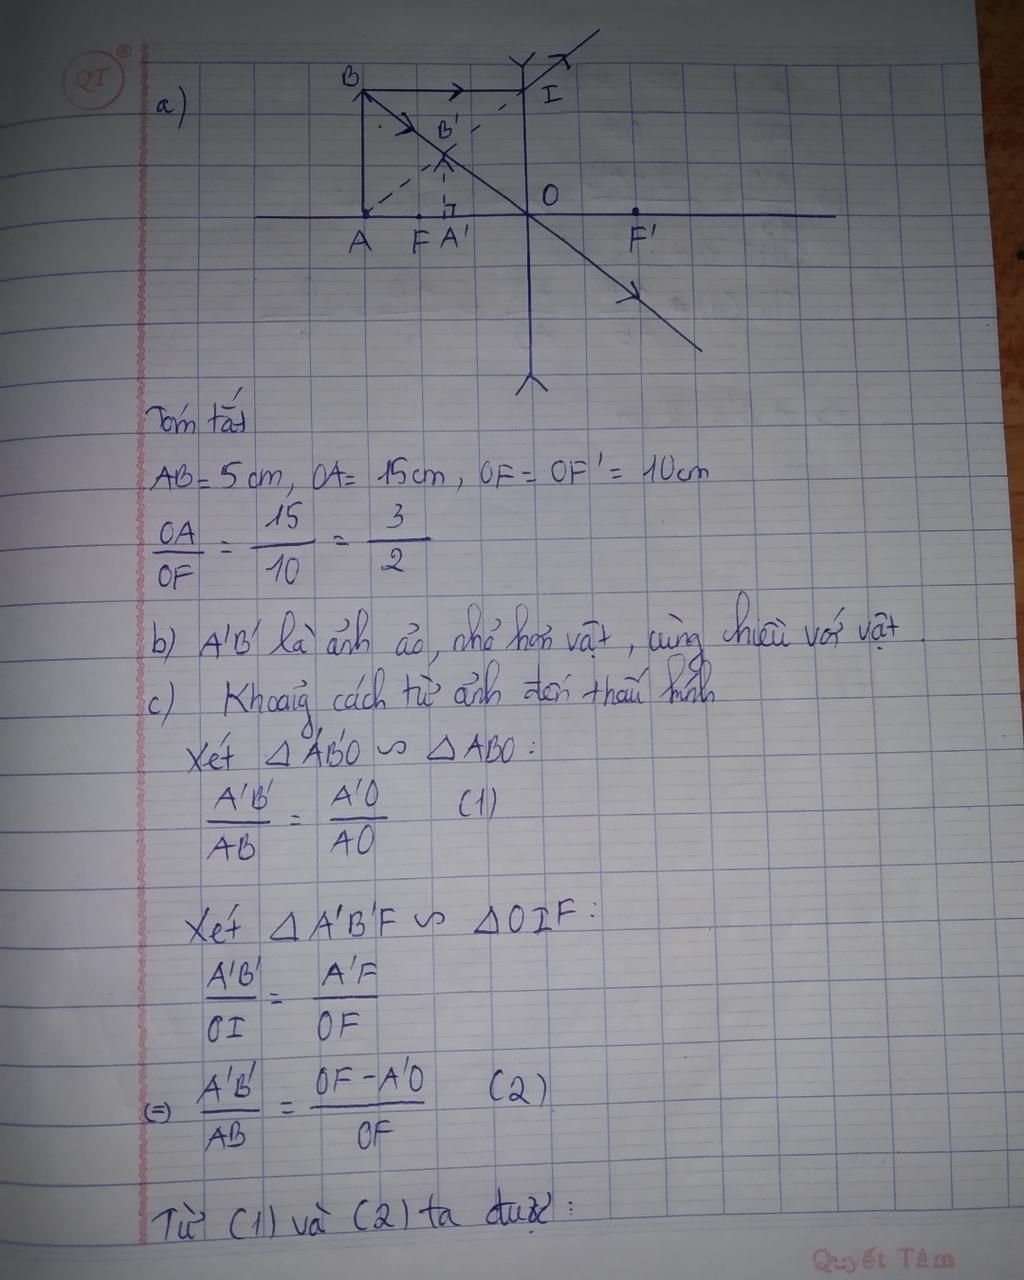 QT
®
a)
B
I
B'
O
A
F
A'
F'
Tóm tắt
AB = 5 cm, OA = 15cm, OF = OF' = 10cm
OA/OF = 15/10 = 3/2
b) A'B' là ảnh ảo, nhỏ hơn vật, cùng chiều với vật
c) Khoảng cách từ ảnh đến thấu kính
Xét Δ A'B'O ∽ Δ ABO :
A'B'/AB = A'O/AO (1)
Xét Δ A'B'F ∽ Δ OIF :
A'B'/OI = A'F/OF
(=) A'B'/AB = OF - A'O/OF (2)
Từ (1) và (2) ta được :
Quyết Tâm